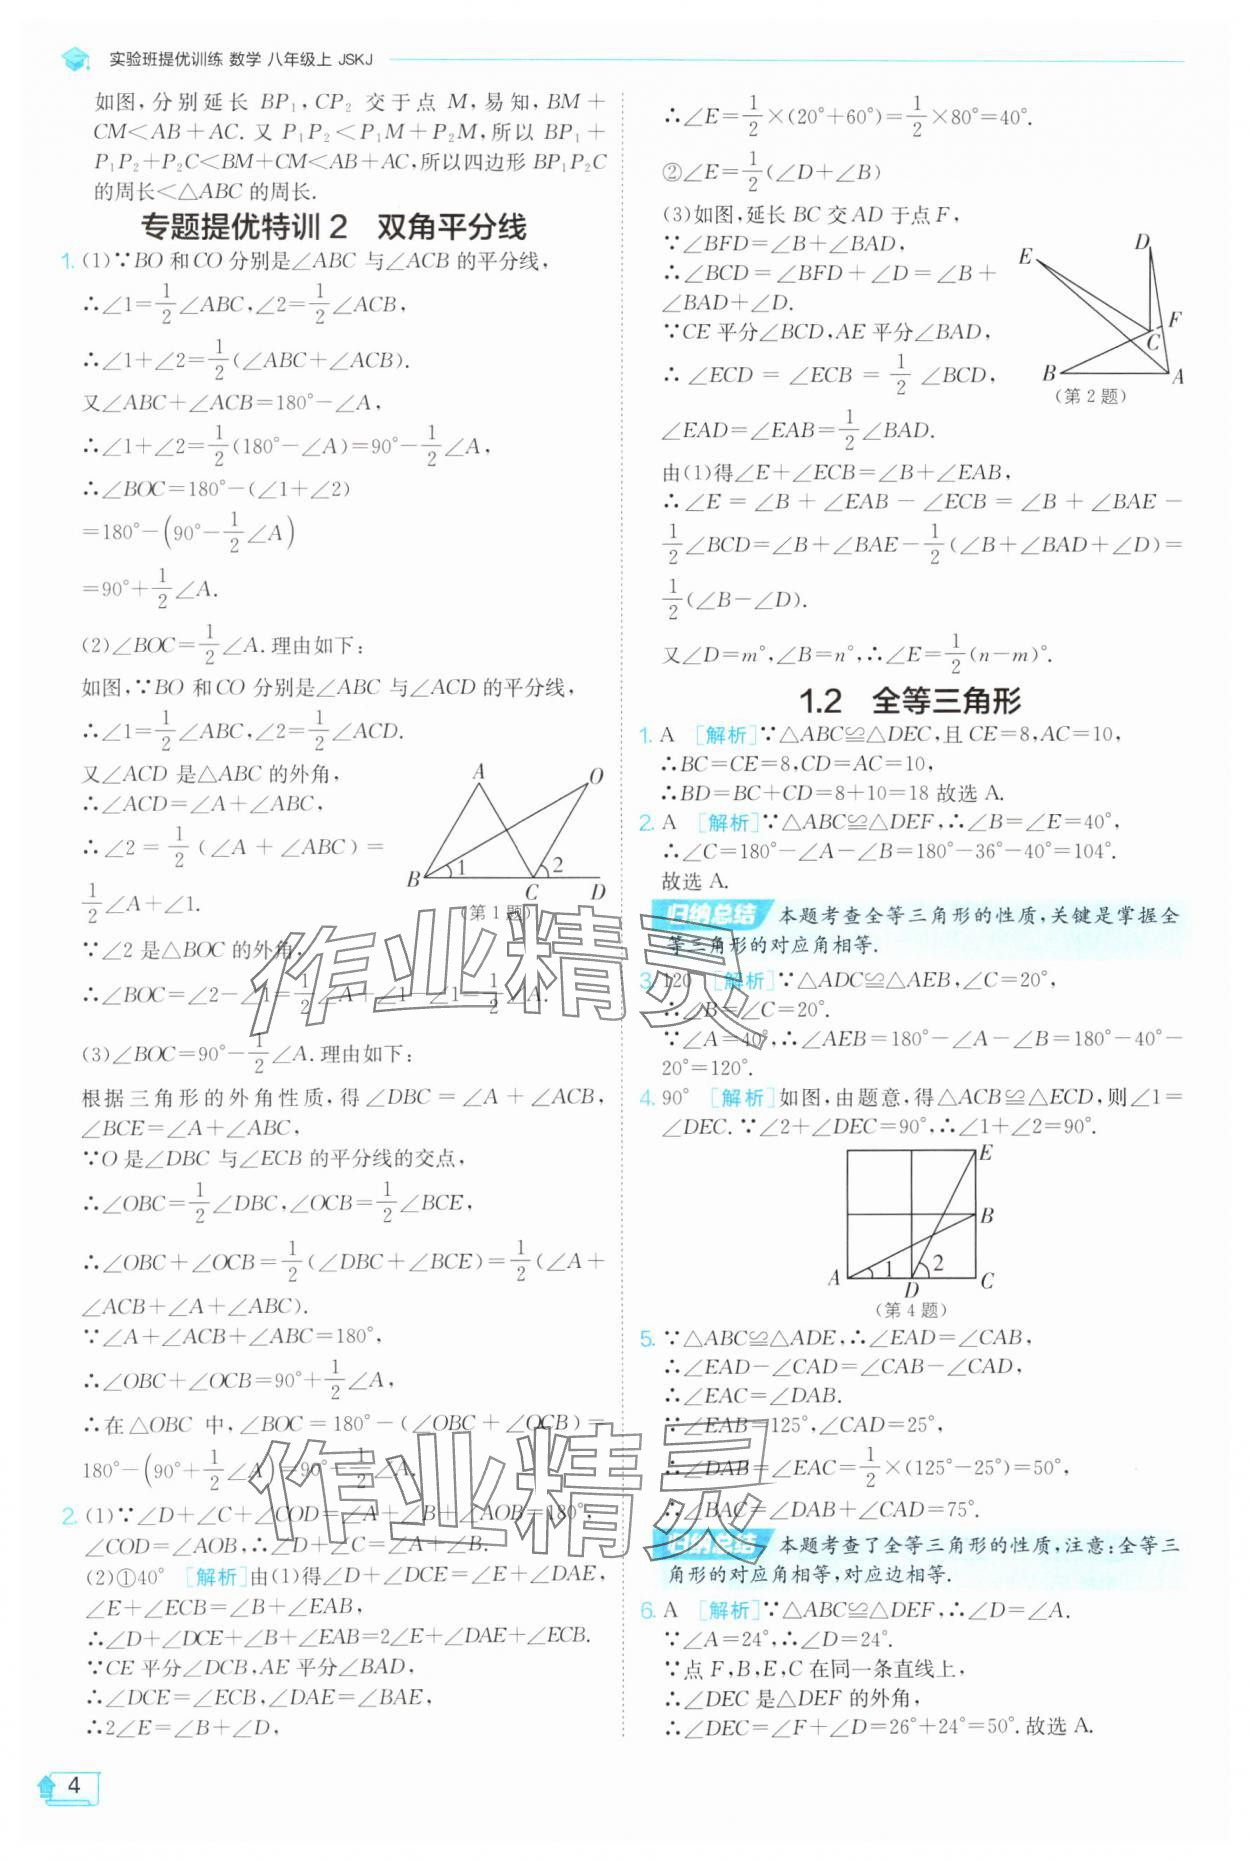 实验班提优训练 数学 八年级上 JSKJ
如图,分别延长 BP₁,CP₂ 交于点 M,易知,BM+
CM<AB+AC. 又 P₁P₂<P₁M+P₂M,所以 BP₁+
P₁P₂+P₂C<BM+CM<AB+AC,所以四边形 BP₁P₂C
的周长<△ABC 的周长.
专题提优特训 2 双角平分线
1. (1)∵BO 和 CO 分别是∠ABC 与∠ACB 的平分线,
∴∠1=1/2∠ABC,∠2=1/2∠ACB,
∴∠1+∠2=1/2(∠ABC+∠ACB).
又∠ABC+∠ACB=180°-∠A,
∴∠1+∠2=1/2(180°-∠A)=90°-1/2∠A,
∴∠BOC=180°-(∠1+∠2)
=180°-(90°-1/2∠A)
=90°+1/2∠A.
(2)∠BOC=1/2∠A. 理由如下:
如图,∵BO 和 CO 分别是∠ABC 与∠ACD 的平分线,
∴∠1=1/2∠ABC,∠2=1/2∠ACD.
又∠ACD 是△ABC 的外角,
∴∠ACD=∠A+∠ABC,
∴∠2=1/2(∠A+∠ABC)=
1/2∠A+∠1.
A
O
B
1
2
C
D
(第 1 题)
∵∠2 是△BOC 的外角,
∴∠BOC=∠2-∠1=1/2∠A+∠1-∠1=1/2∠A.
(3)∠BOC=90°-1/2∠A. 理由如下:
根据三角形的外角性质,得∠DBC=∠A+∠ACB,
∠BCE=∠A+∠ABC,
∵O 是∠DBC 与∠ECB 的平分线的交点,
∴∠OBC=1/2∠DBC,∠OCB=1/2∠BCE,
∴∠OBC+∠OCB=1/2(∠DBC+∠BCE)=1/2(∠A+
∠ACB+∠A+∠ABC).
∵∠A+∠ACB+∠ABC=180°,
∴∠OBC+∠OCB=90°+1/2∠A,
∴在△OBC 中,∠BOC=180°-(∠OBC+∠OCB)=
180°-(90°+1/2∠A)=90°-1/2∠A.
2. (1)∵∠D+∠C+∠COD=∠A+∠B+∠AOB=180°,
∠COD=∠AOB,∴∠D+∠C=∠A+∠B.
(2)①40° [解析]由(1)得∠D+∠DCE=∠E+∠DAE,
∠E+∠ECB=∠B+∠EAB,
∴∠D+∠DCE+∠B+∠EAB=2∠E+∠DAE+∠ECB.
∵CE 平分∠DCB,AE 平分∠BAD,
∴∠DCE=∠ECB,∠DAE=∠BAE,
∴2∠E=∠B+∠D,
4
∴∠E=1/2×(20°+60°)=1/2×80°=40°.
②∠E=1/2(∠D+∠B)
(3)如图,延长 BC 交 AD 于点 F,
∵∠BFD=∠B+∠BAD,
∴∠BCD=∠BFD+∠D=∠B+
∠BAD+∠D.
∵CE 平分∠BCD,AE 平分∠BAD,
∴∠ECD=∠ECB=1/2∠BCD,
∠EAD=∠EAB=1/2∠BAD.
E
D
F
C
B
A
(第 2 题)
由(1)得∠E+∠ECB=∠B+∠EAB,
∴∠E=∠B+∠EAB-∠ECB=∠B+∠BAE-
1/2∠BCD=∠B+∠BAE-1/2(∠B+∠BAD+∠D)=
1/2(∠B-∠D).
又∠D=m°,∠B=n°,∴∠E=1/2(n-m)°.
1.2 全等三角形
1. A [解析]∵△ABC≌△DEC,且 CE=8,AC=10,
∴BC=CE=8,CD=AC=10,
∴BD=BC+CD=8+10=18 故选 A.
2. A [解析]∵△ABC≌△DEF,∴∠B=∠E=40°,
∴∠C=180°-∠A-∠B=180°-36°-40°=104°.
故选 A.
归纳总结 本题考查全等三角形的性质,关键是掌握全
等三角形的对应角相等.
3. 120 [解析]∵△ADC≌△AEB,∠C=20°,
∴∠B=∠C=20°.
∵∠A=40°,∴∠AEB=180°-∠A-∠B=180°-40°-
20°=120°.
4. 90° [解析]如图,由题意,得△ACB≌△ECD,则∠1=
∠DEC. ∵∠2+∠DEC=90°,∴∠1+∠2=90°.
E
B
A
1
2
D
C
(第 4 题)
5. ∵△ABC≌△ADE,∴∠EAD=∠CAB,
∴∠EAD-∠CAD=∠CAB-∠CAD,
∴∠EAC=∠DAB.
∵∠EAB=125°,∠CAD=25°,
∴∠DAB=∠EAC=1/2×(125°-25°)=50°,
∴∠BAC=∠DAB+∠CAD=75°.
归纳总结 本题考查了全等三角形的性质,注意:全等三
角形的对应角相等,对应边相等.
6. A [解析]∵△ABC≌△DEF,∴∠D=∠A.
∵∠A=24°,∴∠D=24°.
∵点 F,B,E,C 在同一条直线上,
∴∠DEC 是△DEF 的外角,
∴∠DEC=∠F+∠D=26°+24°=50°. 故选 A.
作业精灵
作业精灵